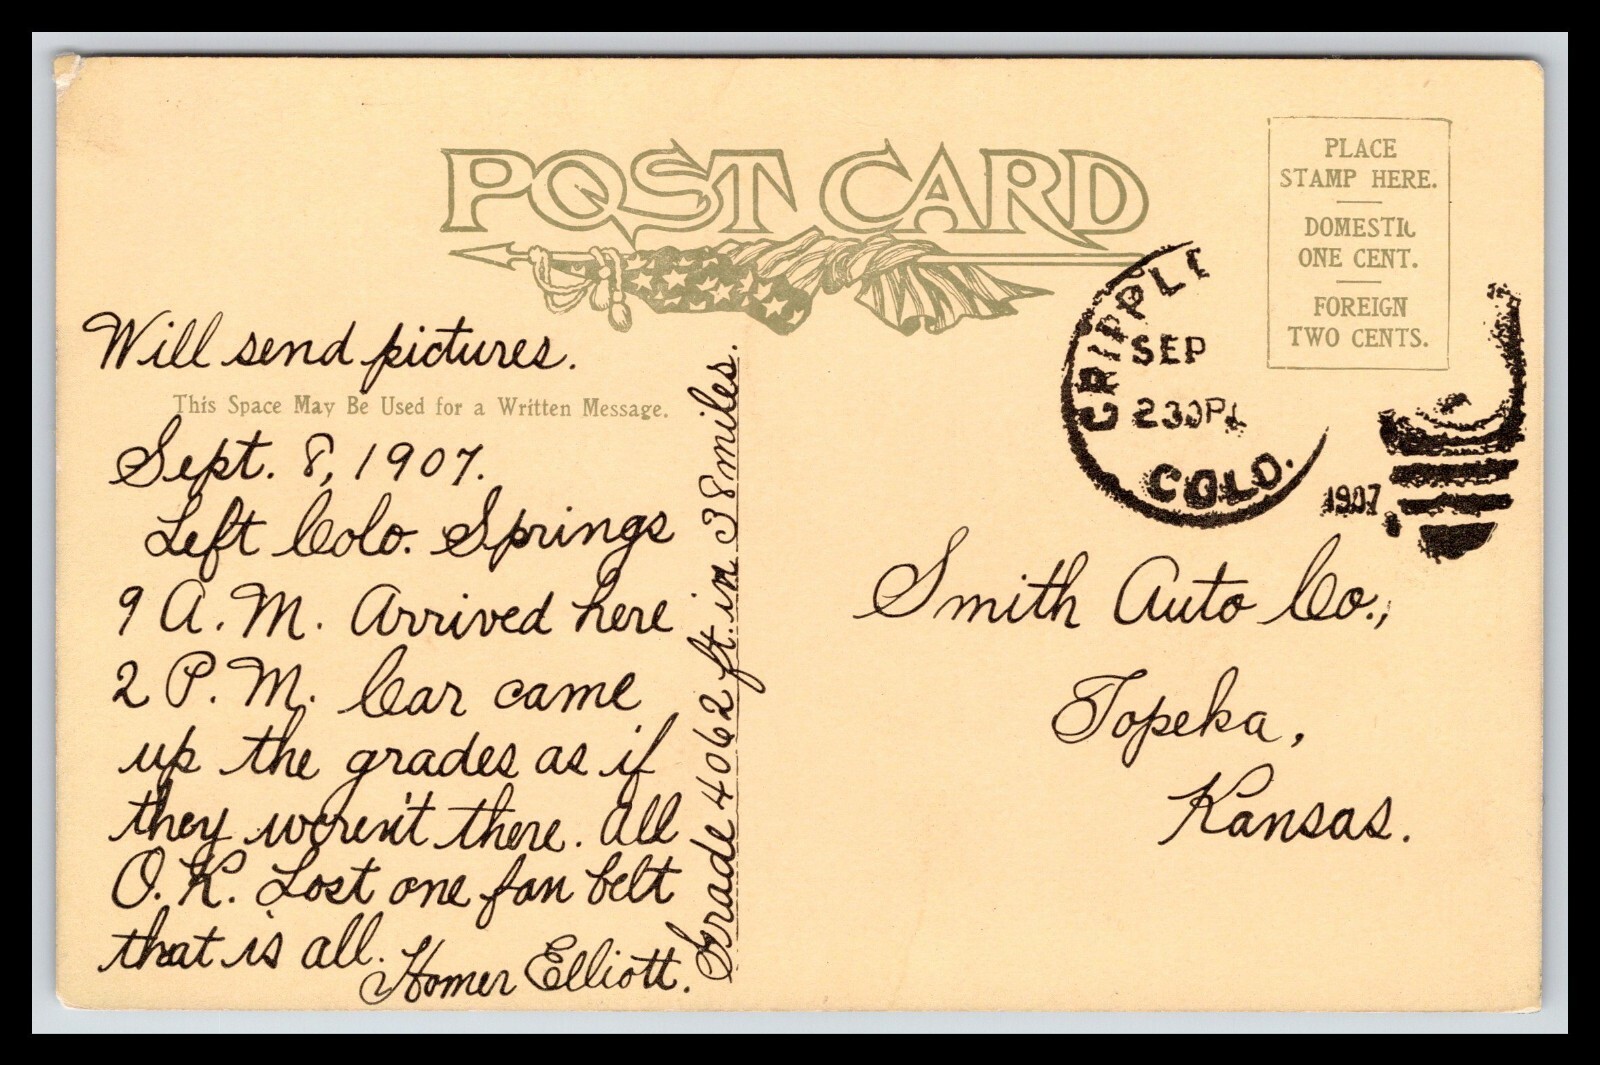 POST CARD
PLACE
STAMP HERE.
DOMESTIC
ONE CENT.
FOREIGN
TWO CENTS.
CRIPPLE
SEP
230P
COLO.
1907
Will send pictures.
This Space May Be Used for a Written Message.
Sept. 8, 1907.
Left Colo. Springs
9 A.M. Arrived here
2 P.M. Car came
up the grades as if
they weren't there. All
O.K. Lost one fan belt
that is all.
Homer Elliott.
Grade 4062 ft. in 38 miles.
Smith Auto Co.,
Topeka,
Kansas.